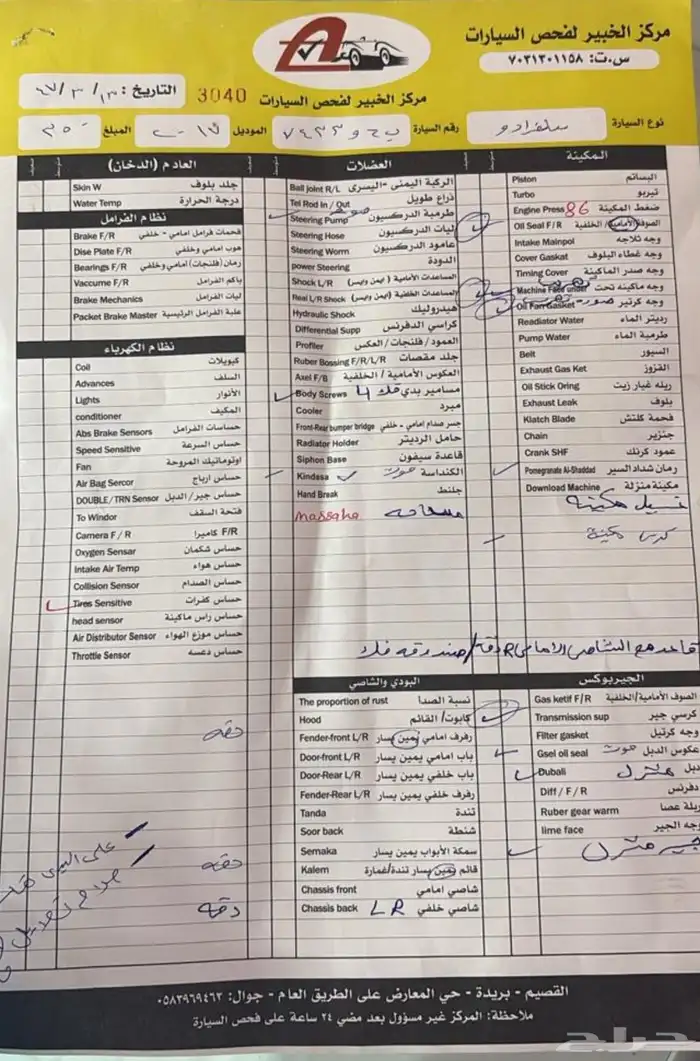 مركز الخبير لفحص السيارات
س.ت: ٧٠٣١٣٠١١٥٨
مركز الخبير لفحص السيارات
3040
التاريخ:
نوع السيارة سلفرادو
رقم السيارة
الموديل
المبلغ ٣٥٠
المكينة
Piston البساتم
Turbo تيربو
Engine Press 86 ضغط المكينة
Oil Seal F/R الصوف الأمامية/الخلفية
Intake Mainpol وجه ثلاجه
Cover Gaskat وجه غطاء البلوف
Timing Cover وجه صدر الماكينة
Machine Face under وجه ماكينه تحت
Oil Pan Gasket وجه كرتير
Readiator Water رديتر الماء
Pump Water طرمبة الماء
Belt السيور
Exhaust Gas Ket القزوز
Oil Stick Oring ربله غبار زيت
Exhaust Leak بلوف
Klatch Blade فحمة كلتش
Chain جنزير
Crank SHF عمود كرنك
Pomegranate Al-Shaddad رمان شداد السير
Download Machine مكينة منزلة
مكينة
كرسي مكينة
العضلات
Ball joint R/L الركبة اليمنى -اليسرى
Tel Rod In / Out ذراع طويل
Steering Pump طرمبة الدركسيون
Steering Hose ليات الدركسيون
Steering Worm عامود الدركسيون
power Steering الدودة
Shock L/R المساعدات الأمامية (ايمن ويسر)
Real L/R Shock المساعدات الخلفية (ايمن ويسر)
Hydraulic Shock هيدروليك
Differential Supp كراسي الدفرنس
Profiler العمود/فلنجات/العكس
Ruber Bossing F/R/L/R جلد مقصات
Axel F/B العكوس الأمامية / الخلفية
Body Screws مسامير بدي فك
Cooler مبرد
Front-Rear bumper bridge جسر صدام امامي - خلفي
Radiator Holder حامل الرديتر
Siphon Base قاعدة سيفون
Kindasa الكنداسة صوت
Hand Break جلنط
massaha مساحه
العادم (الدخان)
Skin W جلد بلوف
Water Temp درجة الحرارة
نظام الفرامل
Brake F/R فحمات فرامل امامي - خلفي
Disc Plate F/R هوب امامي وخلفي
Bearings F/R رمان (فلنجات) امامي وخلفي
Vaccume F/R باكم الفرامل
Brake Mechanics ليات الفرامل
Packet Brake Master علبة الفرامل الرئيسية
نظام الكهرباء
Coil كويلات
Advances السلف
Lights الأنوار
conditioner المكيف
Abs Brake Sensors حساسات الفرامل
Speed Sensitive حساس السرعة
Fan اوتوماتيك المروحة
Air Bag Sercor حساس ارباج
DOUBLE/TRN Sensor حساس جير/الدبل
To Windor فتحة السقف
Camera F / R كاميرا F/R
Oxygen Sensar حساس شكمان
Intake Air Temp حساس هواء
Collision Sensor حساس الصدام
Tires Sensitive حساس كفرات
head sensor حساس راس ماكينة
Air Distributor Sensor حساس موزع الهواء
Throttle Sensor حساس دعسه
قاعد مع الشاصي الامامي R دقه/صندوقه فلا
الجيربوكس
Gas ketif F/R الصوف الأمامية/الخلفية
Transmission sup كرسي جير
Filter gasket وجه كرتيل
Gsel oil seal عكوس الدبل صوت
Dubali دبل منزل
Diff / F / R دفرنس
Ruber gear warm ربلة عصا
lime face وجه الجير
جير منزل
البودي والشاصي
The proportion of rust نسبة الصدأ
Hood كابوت/ القائم
Fender-front L/R رفرف امامي يمين يسار
Door-front L/R باب امامي يمين يسار
Door-Rear L/R باب خلفي يمين يسار
Fender-Rear L/R رفرف خلفي يمين يسار
Tanda تندة
Soor back شنطة
Semaka سمكة الأبواب يمين يسار
Kalem قائم يمين يسار تندة/غمارة
Chassis front شاصي امامي
Chassis back L R شاصي خلفي
دقه
دقه
دقه
القصيم - بريدة - حي المعارض على الطريق العام - جوال: ٠٥٨٣٩٦٩٤٦٢
ملاحظة: المركز غير مسؤول بعد مضي ٢٤ ساعة على فحص السيارة
حراج